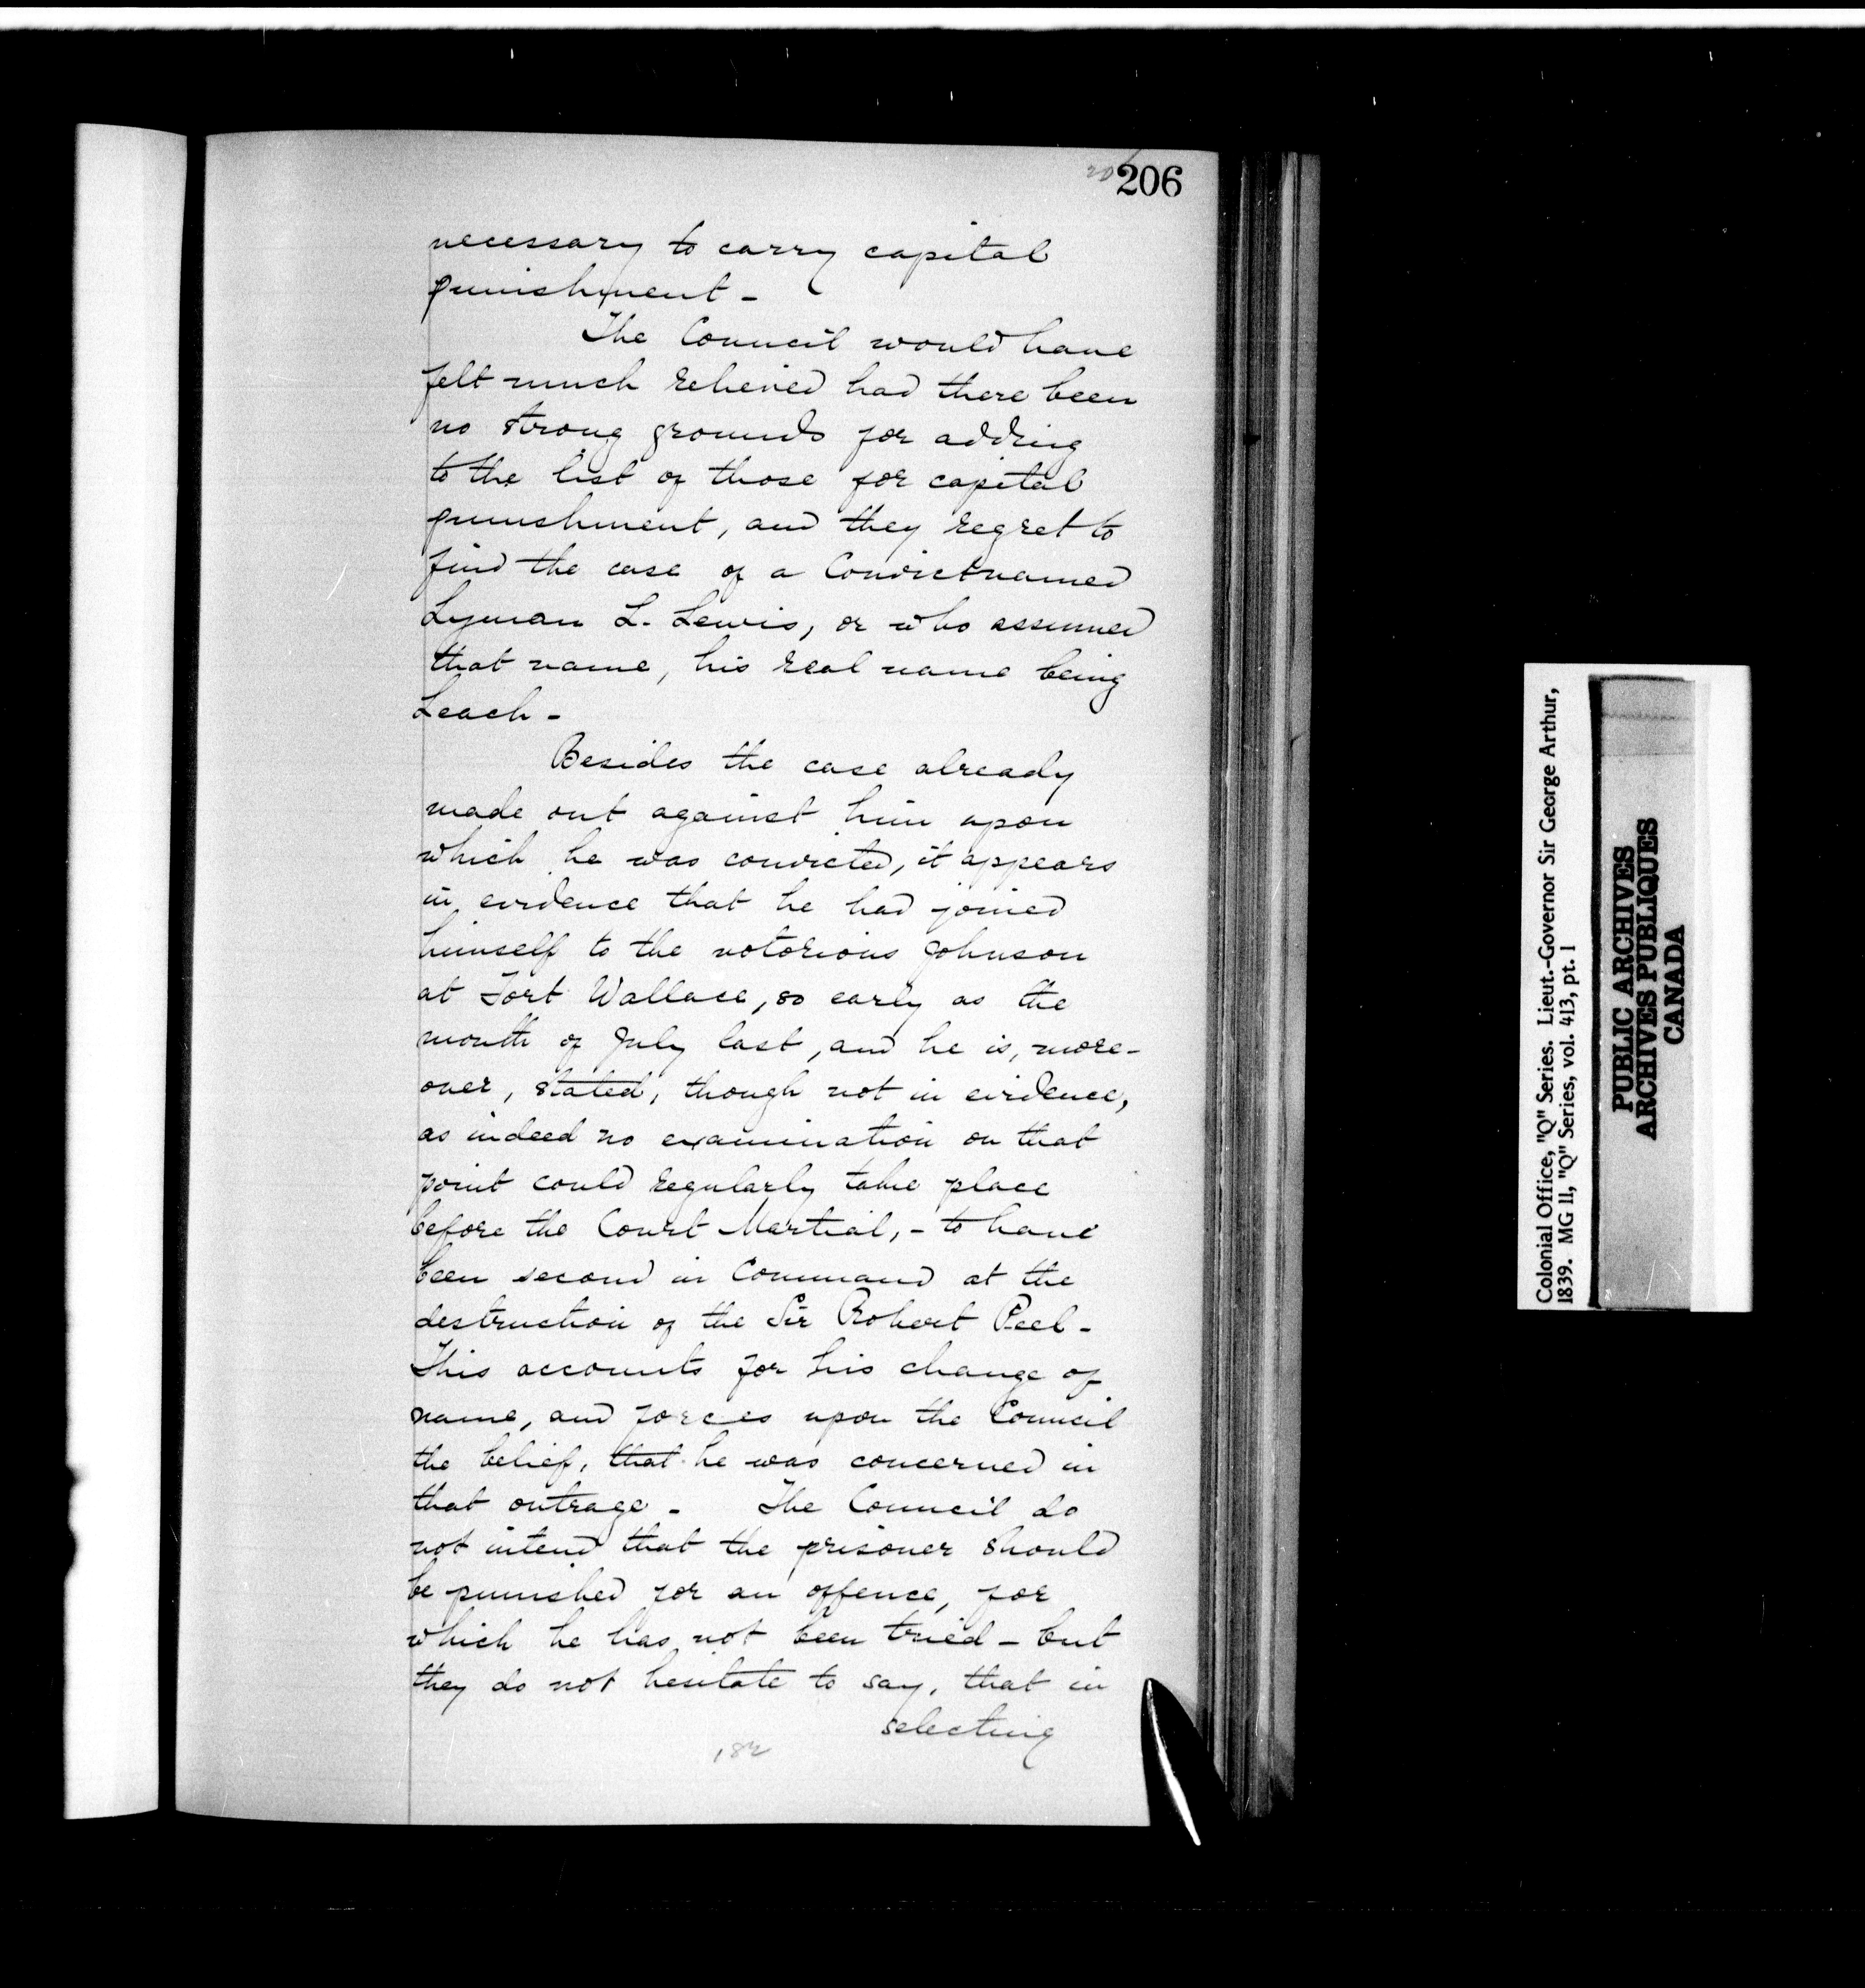 206
necessary to carry capital
punishment -
The Council would have
felt much relieved had there been
no strong grounds for adding
to the list of those for capital
punishment, and they regret to
find the case of a Convict named
Lyman L. Lewis, or who assumed
that name, his real name being
Leach -
Besides the case already
made out against him upon
which he was convicted, it appears
in evidence that he had joined
himself to the notorious Johnson
at Fort Wallace, so early as the
month of July last, and he is, more-
over, stated, though not in evidence,
as indeed no examination on that
point could regularly take place
before the Court Martial, - to have
been second in Command at the
destruction of the Sir Robert Peel -
This accounts for his change of
name, and forces upon the Council
the belief, that he was concerned in
that outrage - The Council do
not intend that the prisoner should
be punished for an offence, for
which he has not been tried - but
they do not hesitate to say, that in
selecting
182
Colonial Office, "Q" Series. Lieut.-Governor Sir George Arthur,
1839. MG 11, "Q" Series, vol. 413, pt. 1
PUBLIC ARCHIVES
ARCHIVES PUBLIQUES
CANADA